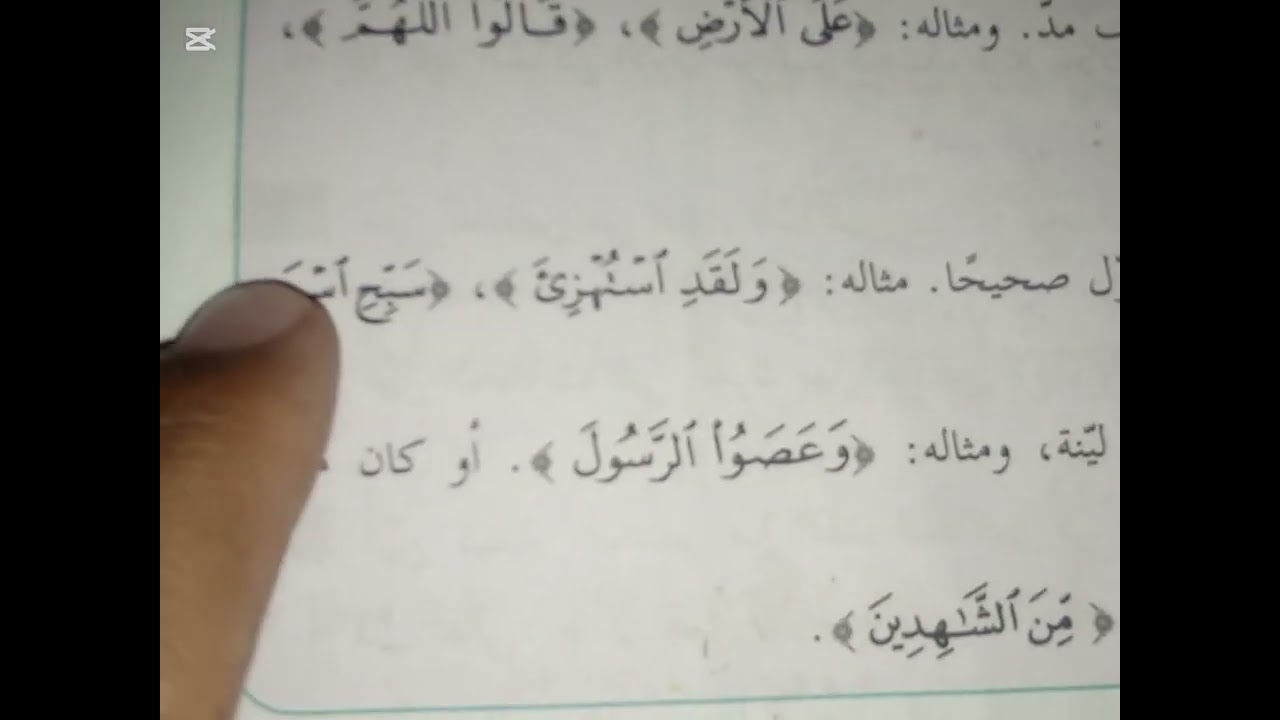 مدّ. ومثاله: ﴿عَلَى ٱلْأَرْضِ﴾، ﴿قَالُوا ٱللَّهُمَّ﴾،
صحيحًا. مثاله: ﴿وَلَقَدِ ٱسْتُهْزِئَ﴾، ﴿سَبِّحِ
ليّنة، ومثاله: ﴿وَعَصَوُا۟ ٱلرَّسُولَ﴾. أو كان
﴿مِّنَ ٱلشَّـٰهِدِينَ﴾.